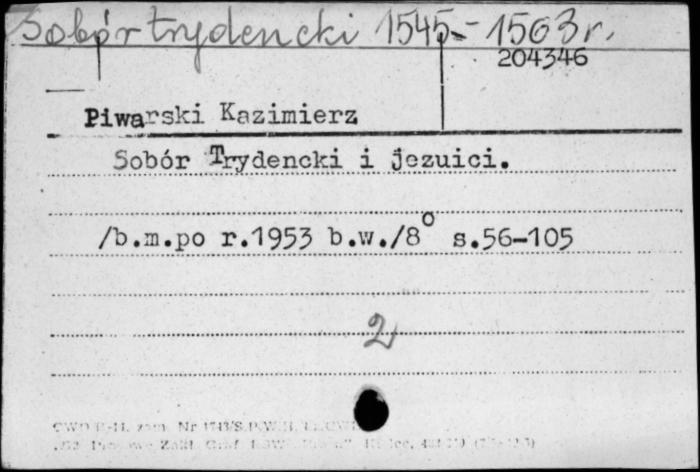 Sobór trydencki 1545-1563 r.
204346
Piwarski Kazimierz
Sobór Trydencki i jezuici.
/b.m.po r.1953 b.w./8° s.56-105
2
Nr